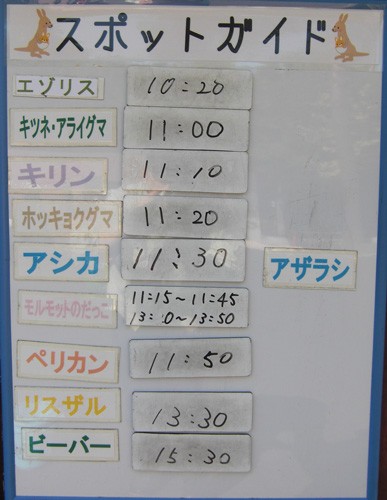 スポットガイド
エゾリス 10:20
キツネ・アライグマ 11:00
キリン 11:10
ホッキョクグマ 11:20
アシカ 11:30 アザラシ
モルモットのだっこ 11:15~11:45
13: 0~13:50
ペリカン 11:50
リスザル 13:30
ビーバー 15:30